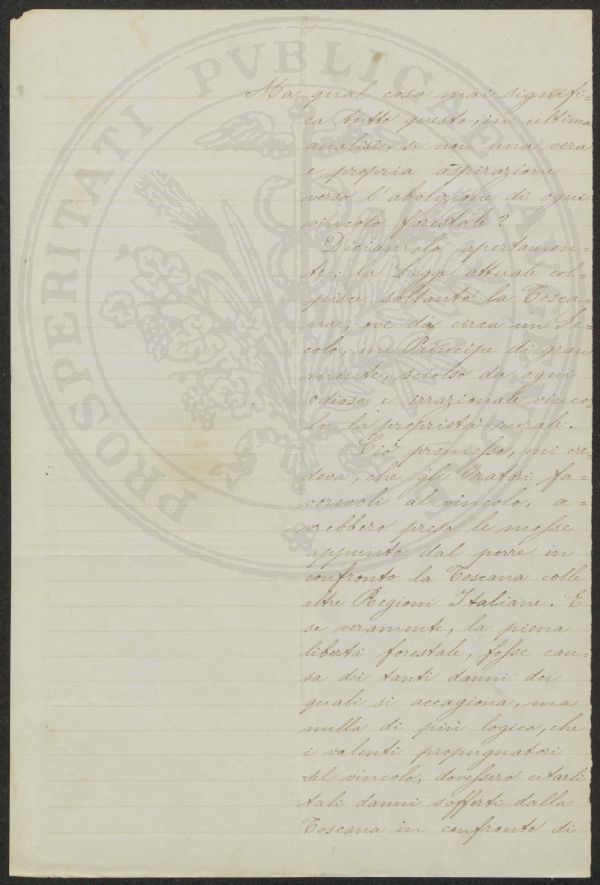 PROSPERITATI PVBLICAE AVGENDAE
Ma qual cosa mai signifi=
ca tutto questo, in ultima
analisi, se non una vera
e propria aspirazione
verso l'abolizione di ogni
vincolo forestale?
Diciamolo apertamen=
te: la Legge attuale col=
pisce soltanto la Tosca=
na, ove da circa un Se=
colo, un Principe di gran
mente, sciolse da ogni
odioso e irrazionale vinco=
lo la proprietà rurale.
Ciò premesso, mi cre=
deva, che gli Oratori fa=
vorevoli al vincolo, a=
vrebbero preso le mosse
appunto dal porre in
confronto la Toscana colle
altre Regioni Italiane. E
se veramente, la piena
libertà forestale, fosse cau=
sa dei tanti danni dei
quali si accagiona, ma
nulla di più logico, che
i valenti propugnatori
del vincolo, dovessero citarli
tali danni sofferti dalla
Toscana in confronto di